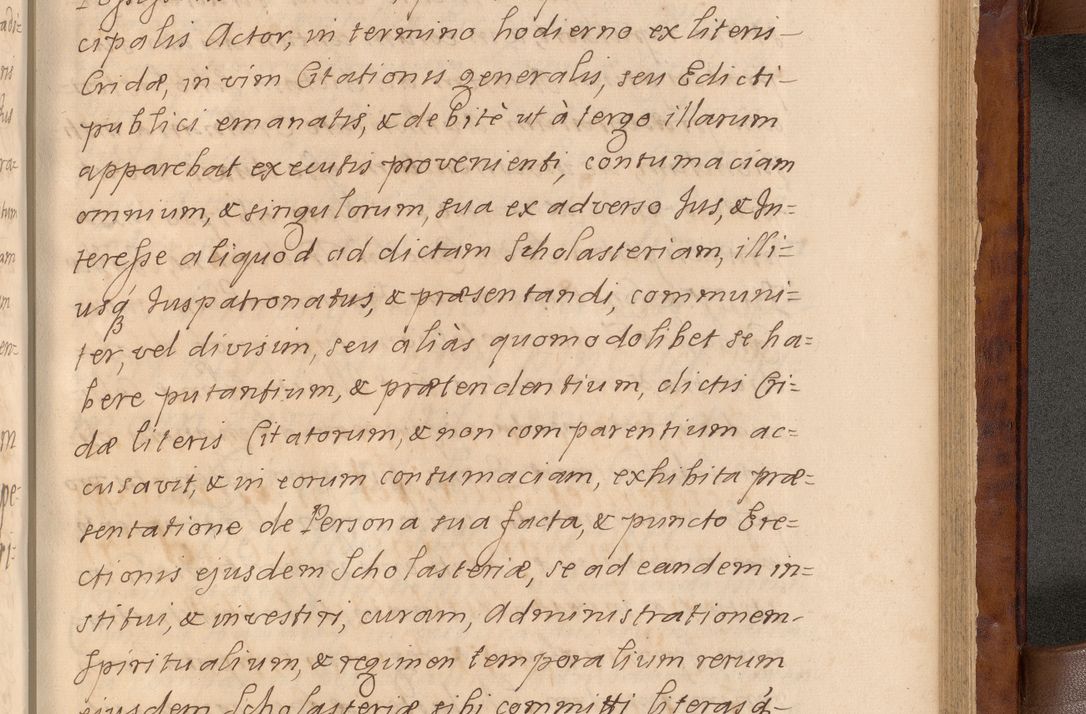 cipalis Actor, in termino hodierno ex literis
Cridæ, in vim Citationis generalis, seu Edicti
publici emanatis, & debitè ut à tergo illarum
apparebat executis provenienti, contumaciam
omnium, & singulorum, sua ex adverso Jus, & In=
teresse aliquod ad dictam Scholasteriam, illi=
usq́ Juspatronatus, & præsentandi, communi=
ter, vel divisim, seu aliàs quomodolibet se ha=
bere putantium, & prætendentium, dictis Cri=
dæ literis Citatorum, & non comparentium ac=
cusavit, & in eorum contumaciam, exhibita præ=
sentatione de Persona sua facta, & puncto Ere=
ctionis ejusdem Scholasteriæ, se ad eandem in=
stitui, & investiri, curam, Administrationem
Spiritualium, & regimen temporalium rerum
ejusdem Scholasteriæ sibi committi literasq́